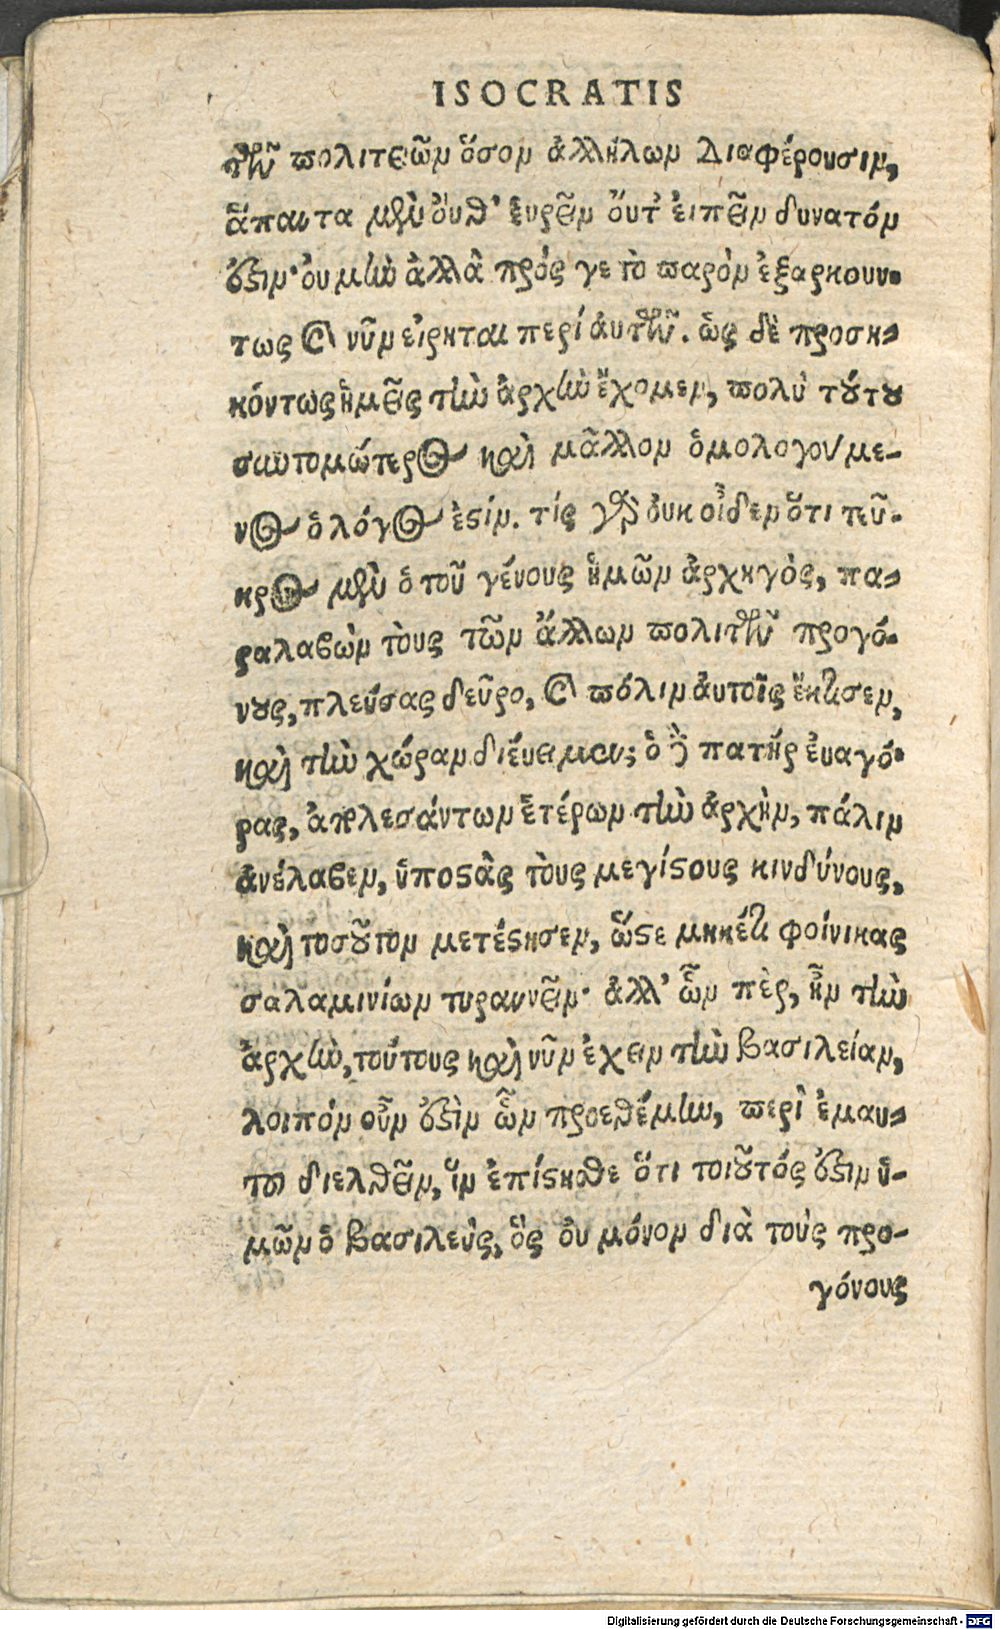 ISOCRATIS
τῶν πολιτειῶν ὅσον ἀλλήλων Διαφέρουσιν,
ἅπαντα μὲν ὄυθ' ἑυρεῖν ὄυτ' ἐιπεῖν δυνατόν
ἐστιν· ὀυ μὴν ἀλλὰ πρός γε τὸ παρὸν ἐξαρκουν-
τως καὶ νῦν εἰρηται περί ἀυτῶν. ὡς δὲ προση-
κόντως ἡμεῖς τὴν ἀρχὴν ἔχομεν, πολὺ τούτου
σαυτομώτερος καὶ μᾶλλον ὁμολογούμε-
νος ὁ λόγος ἐστίν. τίς γὰρ ὀυκ οἶδεν ὅτι τεῦ-
κρος μὲν ὁ τοῦ γένους ἡμῶν ἀρχηγὸς, πα-
ραλαβὼν τὸυς τῶν ἄλλων πολιτῶν προγό-
νους, πλεύσας δεῦρο, καὶ πόλιν ἀυτοῖς ἔκτισεν,
καὶ τὴν χώραν διένειμεν; ὁ δὲ πατήρ ἐυαγό-
ρας, ἀπολεσάντων ἑτέρων τὴν ἀρχὴν, πάλιν
ἀνέλαβεν, ὑποστὰς τὸυς μεγίστους κινδύνους,
καὶ τοσοῦτον μετέστησεν, ὥστε μηκέτι φοίνικας
σαλαμινίων τυραννεῖν· ἀλλ' ὧν πὲρ, ἦν τὴν
ἀρχὴν, τούτους καὶ νῦν ἐχειν τὴν βασιλείαν,
λοιπόν οὖν ἐστὶν ὧν προεθέμην, περὶ ἐμαυ-
του διελθεῖν, ἵν ἐπίστησθε ὅτι τοιοῦτός ἐστιν ὑ-
μῶν ὁ βασιλεὺς, ὃς ὀυ μόνον διὰ τοὺς προ-
γόνους
Digitalisierung gefördert durch die Deutsche Forschungsgemeinschaft - DFG